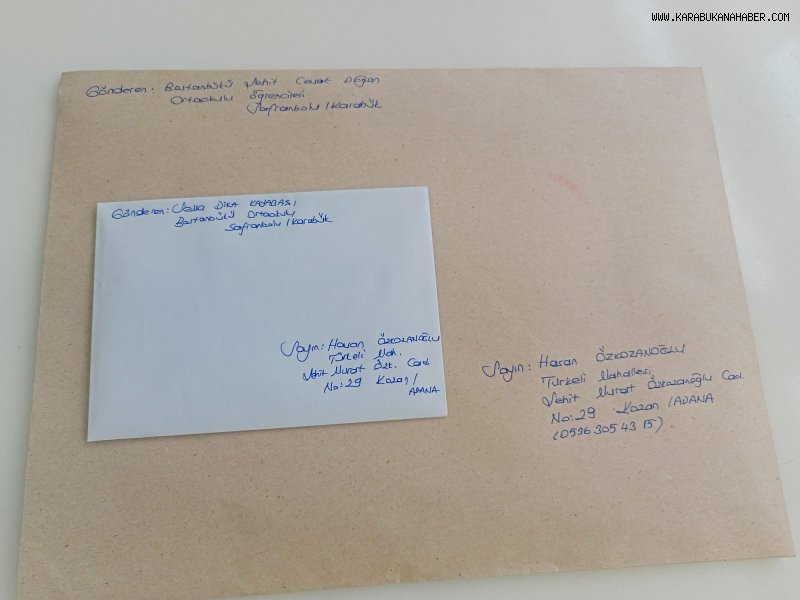 WWW.KARABUKANAHABER.COM
Gönderen: Bostanbükü Şehit Cevat
Ortaokulu Öğrencileri
Safranbolu/Karabük
Gönderen: KAYABAŞI
Bostanbükü Ortaokulu
Safranbolu/Karabük
Sayın: Hasan ÖZKOZANOĞLU
Türkeli Mah.
Şehit Murat Özk. Cad.
No:29 Kozan/
ADANA
Sayın: Hasan ÖZKOZANOĞLU
Türkeli Mahallesi,
Şehit Murat Özkozanoğlu Cad.
No:29 Kozan/ADANA
(0536 305 43 15)